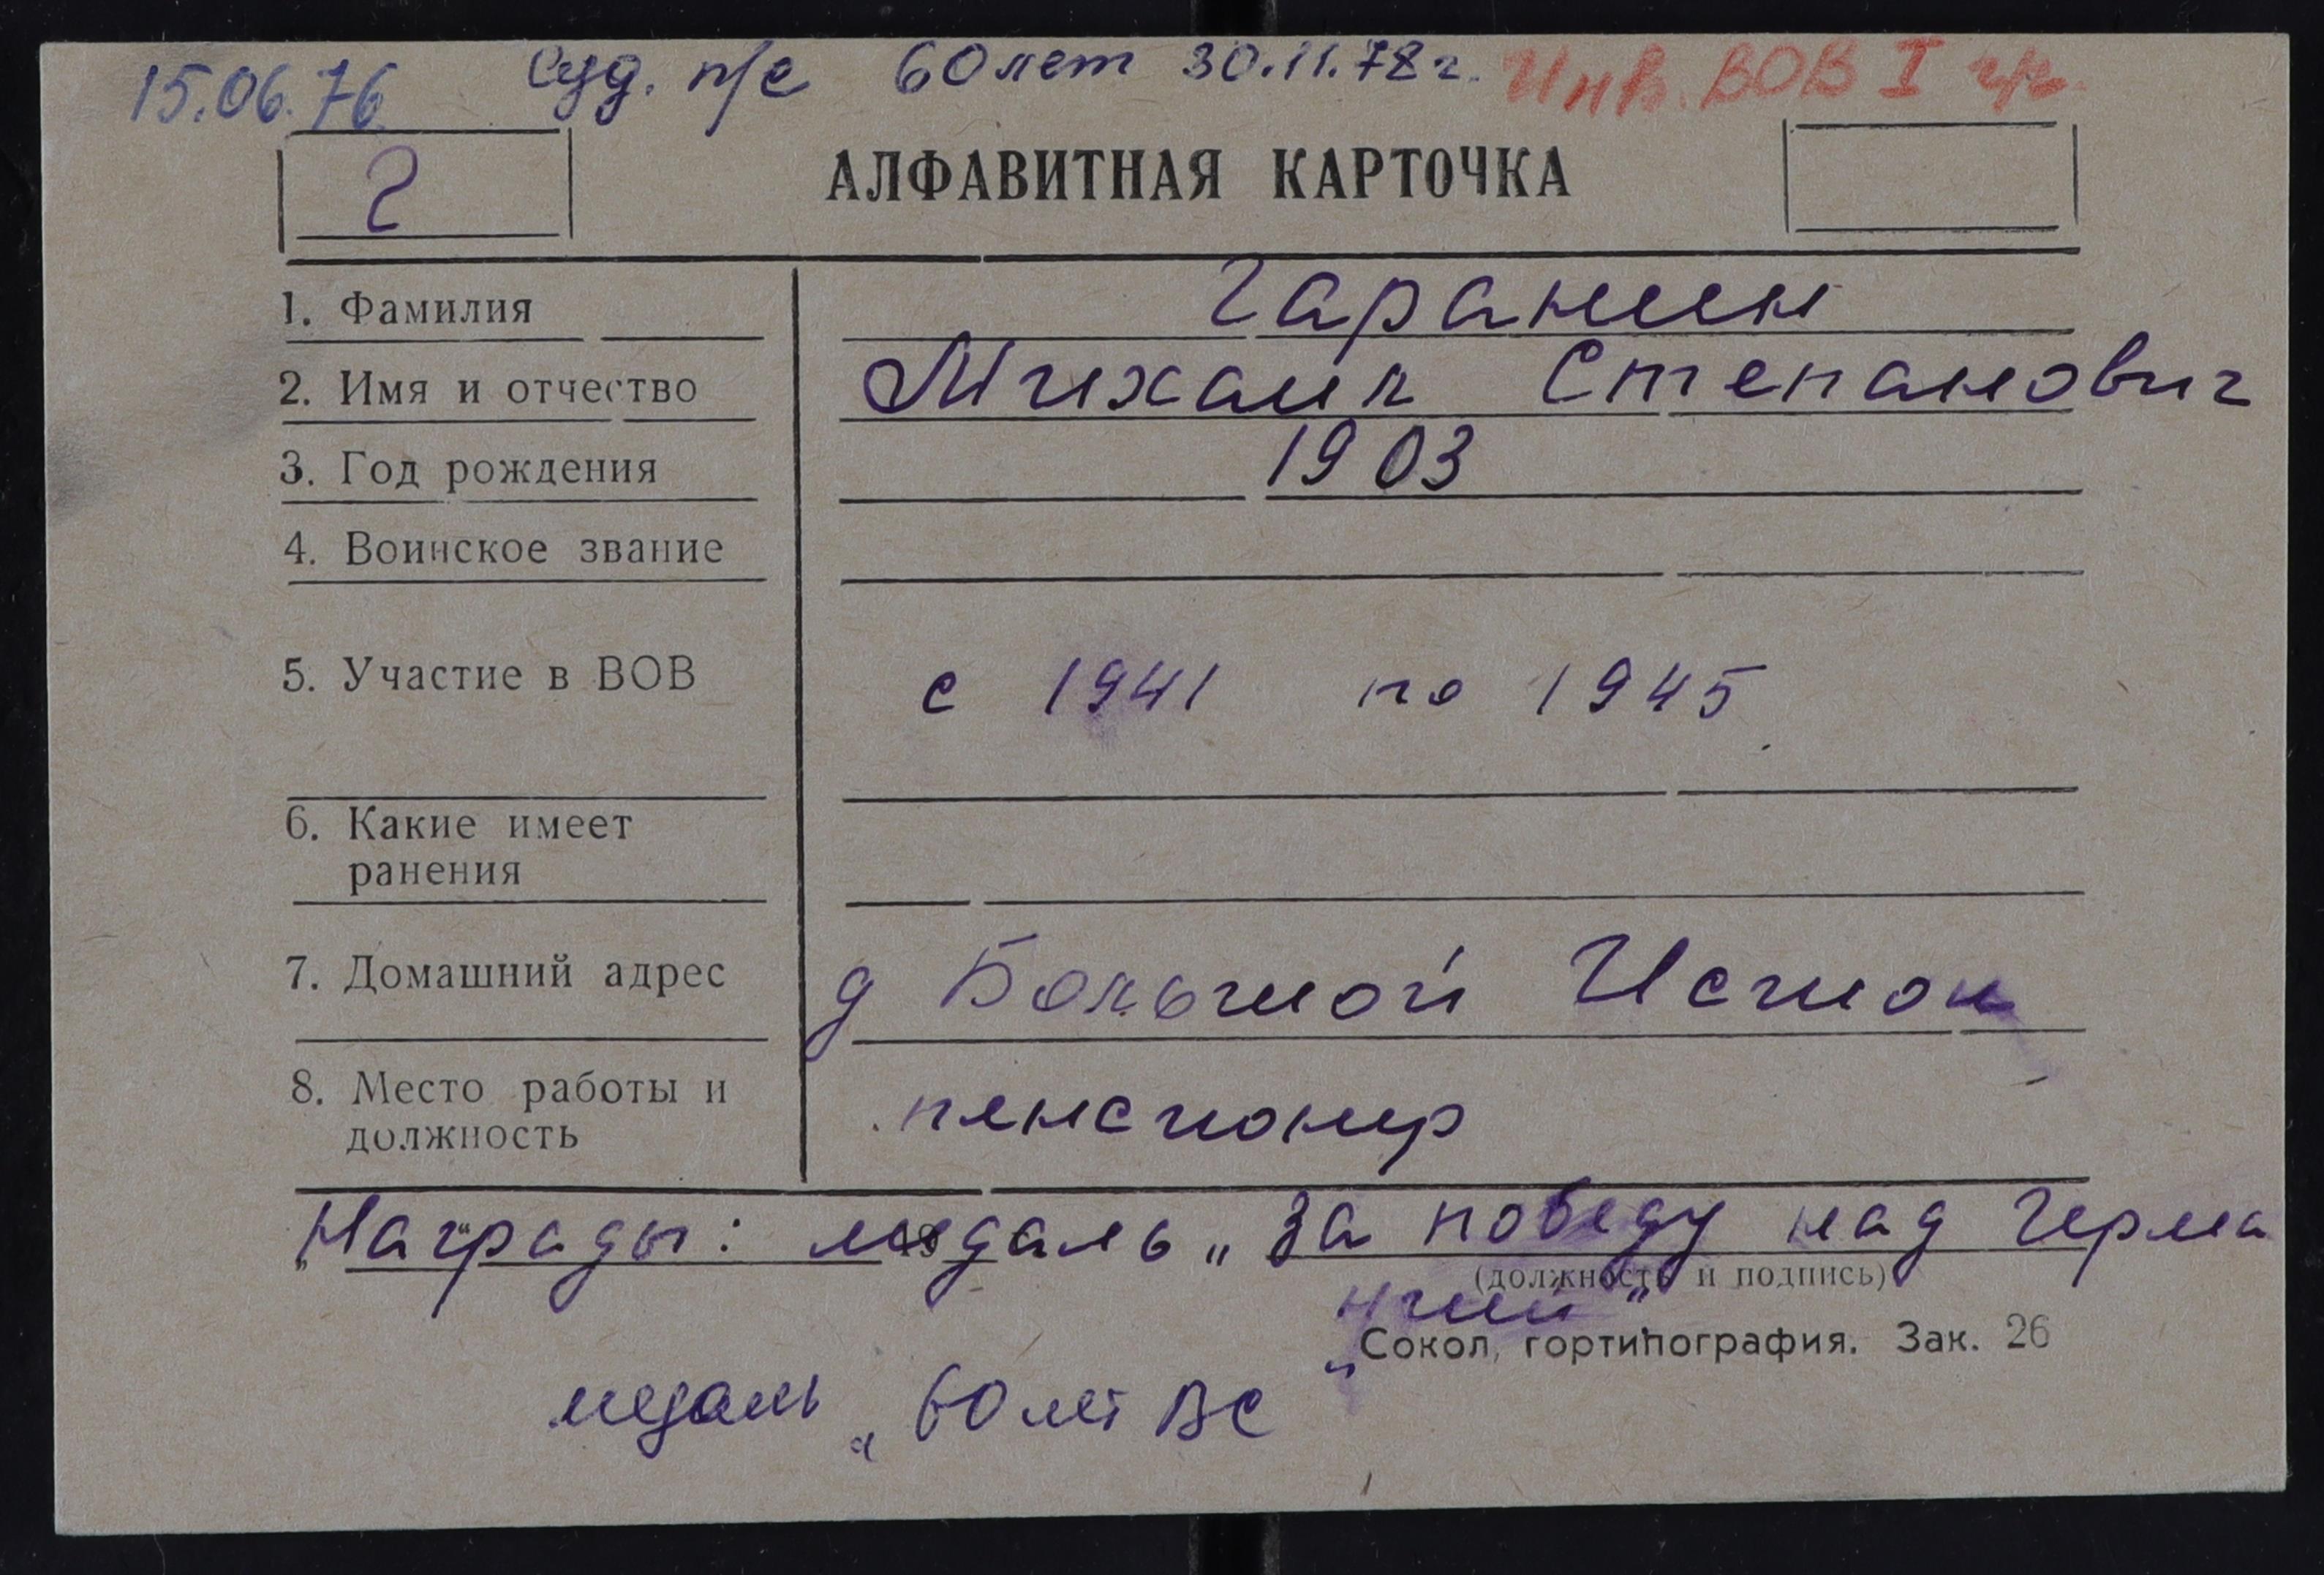 15.06.76 Суд. п/с 60 лет 30.11.78 г. Инв. ВОВ I гр.
Г
АЛФАВИТНАЯ КАРТОЧКА
1. Фамилия Гаранин
2. Имя и отчество Михаил Степанович
3. Год рождения 1903
4. Воинское звание
5. Участие в ВОВ с 1941 по 1945
6. Какие имеет
ранения
7. Домашний адрес д Большой Исток
8. Место работы и
должность
пенсионер
Награды: медаль „За победу над Герма
(должность и подпись)
нией"
Сокол, гортипография. Зак. 26
медаль „60 лет ВС